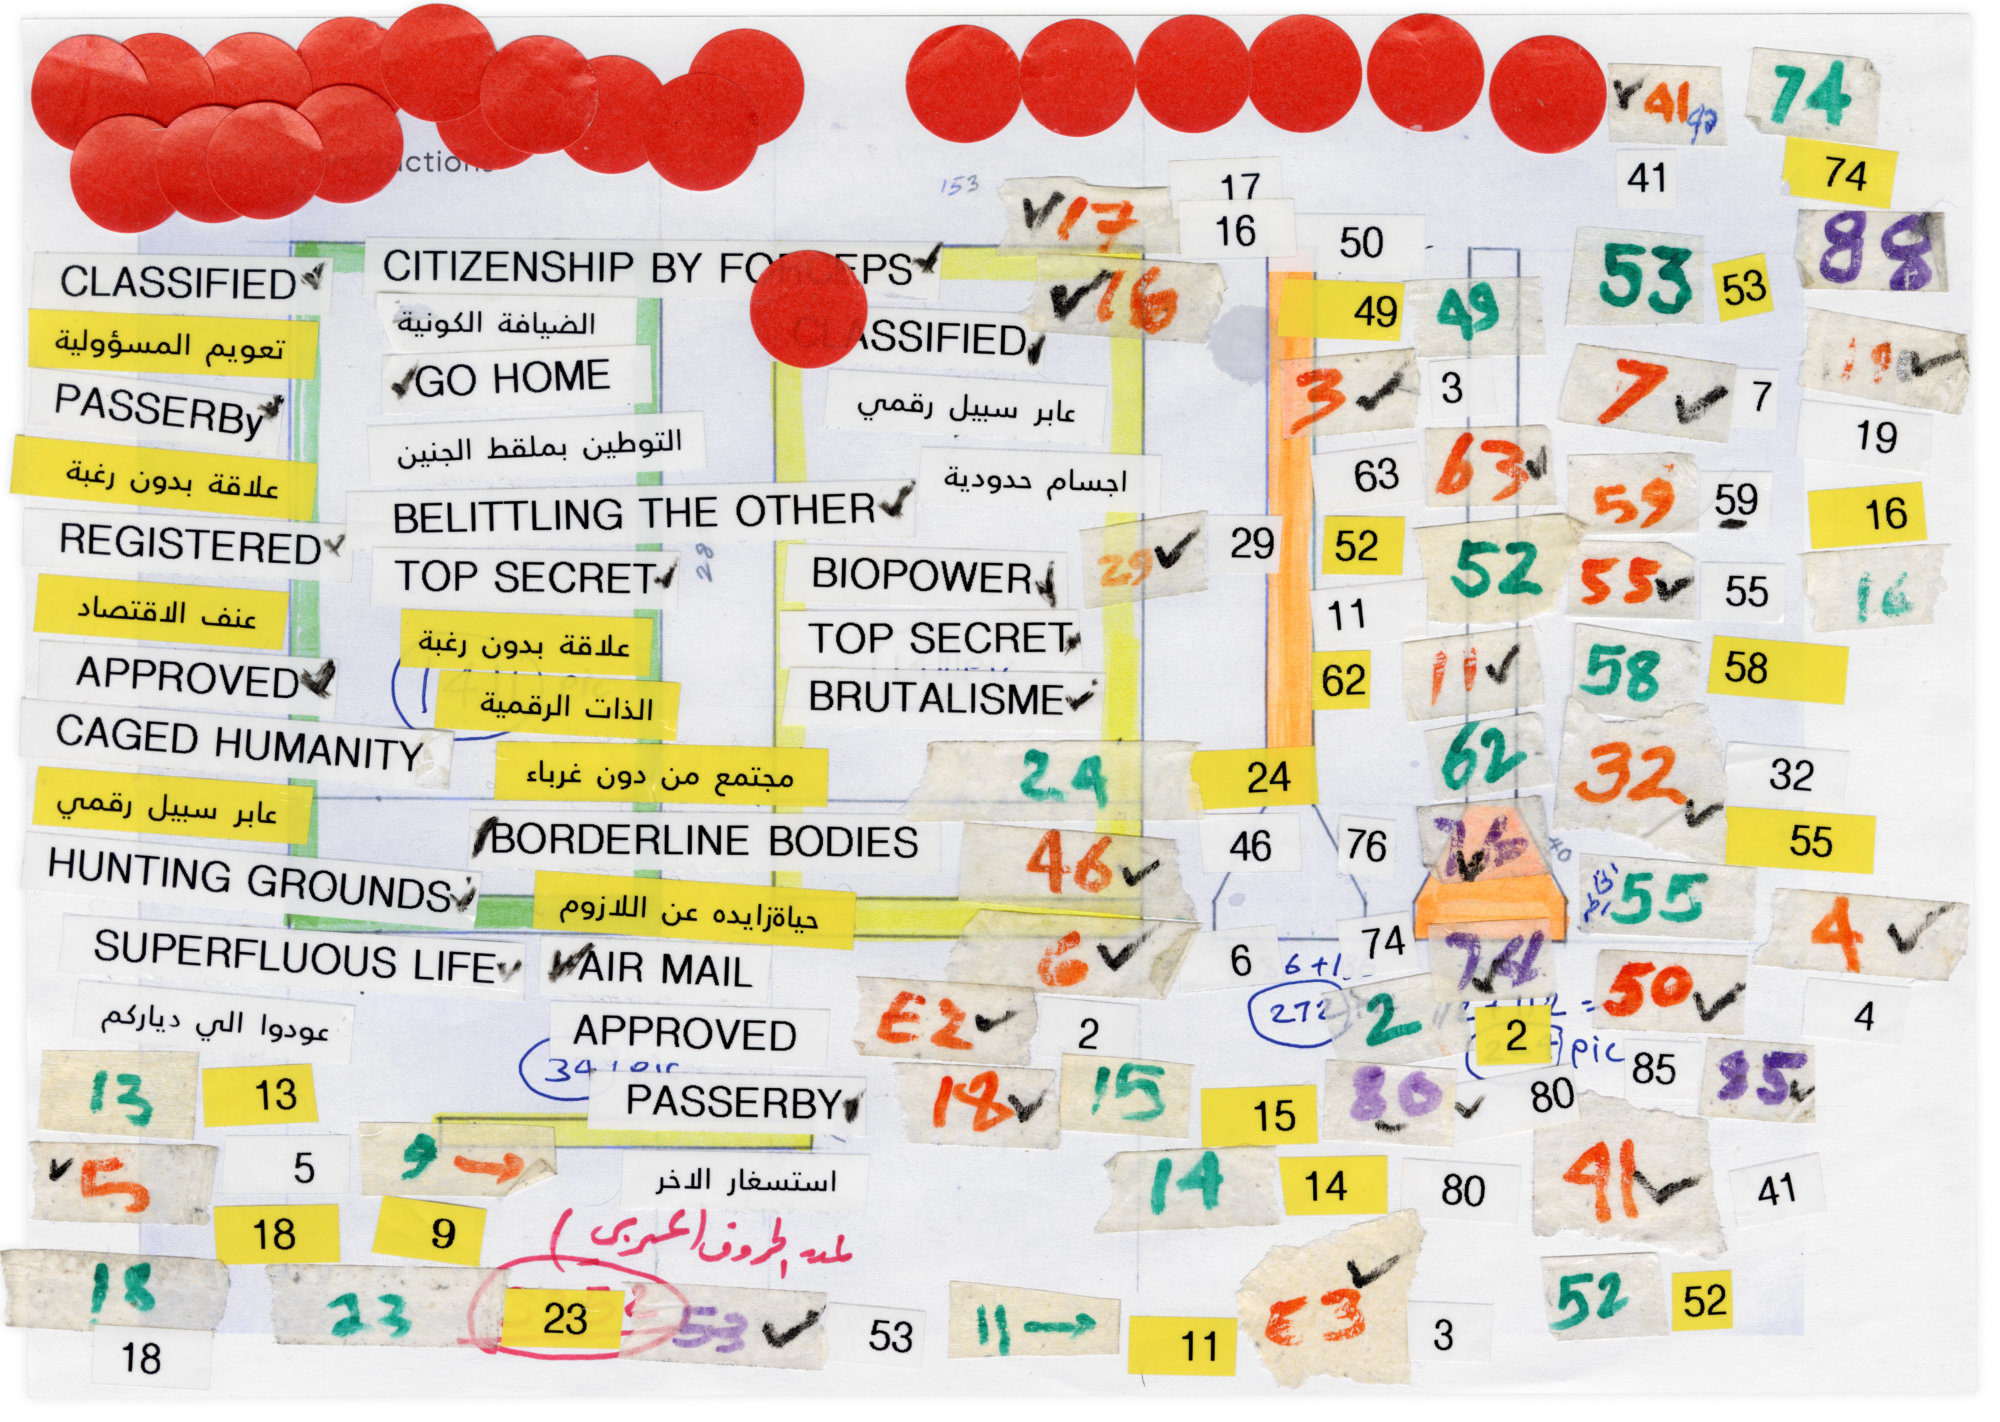 41
74
41
74
153
17
17
16
50
88
53
53
CLASSIFIED
CITIZENSHIP BY FORCEPS
16
49
49
الضيافة الكونية
تعويم المسؤولية
CLASSIFIED
GO HOME
3
3
7
7
19
19
PASSERBy
عابر سبيل رقمي
التوطين بملقط الجنين
63
63
علاقة بدون رغبة
اجسام حدودية
59
59
16
BELITTLING THE OTHER
REGISTERED
29
29
52
52
28
TOP SECRET
BIOPOWER
55
55
16
عنف الاقتصاد
11
علاقة بدون رغبة
TOP SECRET
11
58
58
APPROVED
62
الذات الرقمية
BRUTALISME
CAGED HUMANITY
62
مجتمع من دون غرباء
24
24
32
32
عابر سبيل رقمي
BORDERLINE BODIES
46
46
76
76
55
HUNTING GROUNDS
حياةزايده عن اللازوم
55
4
SUPERFLUOUS LIFE
AIR MAIL
6
6
74
74
272
50
4
عودوا الي دياركم
APPROVED
E2
2
2
2
pic
13
13
PASSERBY
18
15
15
80
80
85
85
5
5
9
استسغار الاخر
14
14
80
41
41
18
9
18
23
23
53
53
11
11
E3
3
52
52
18